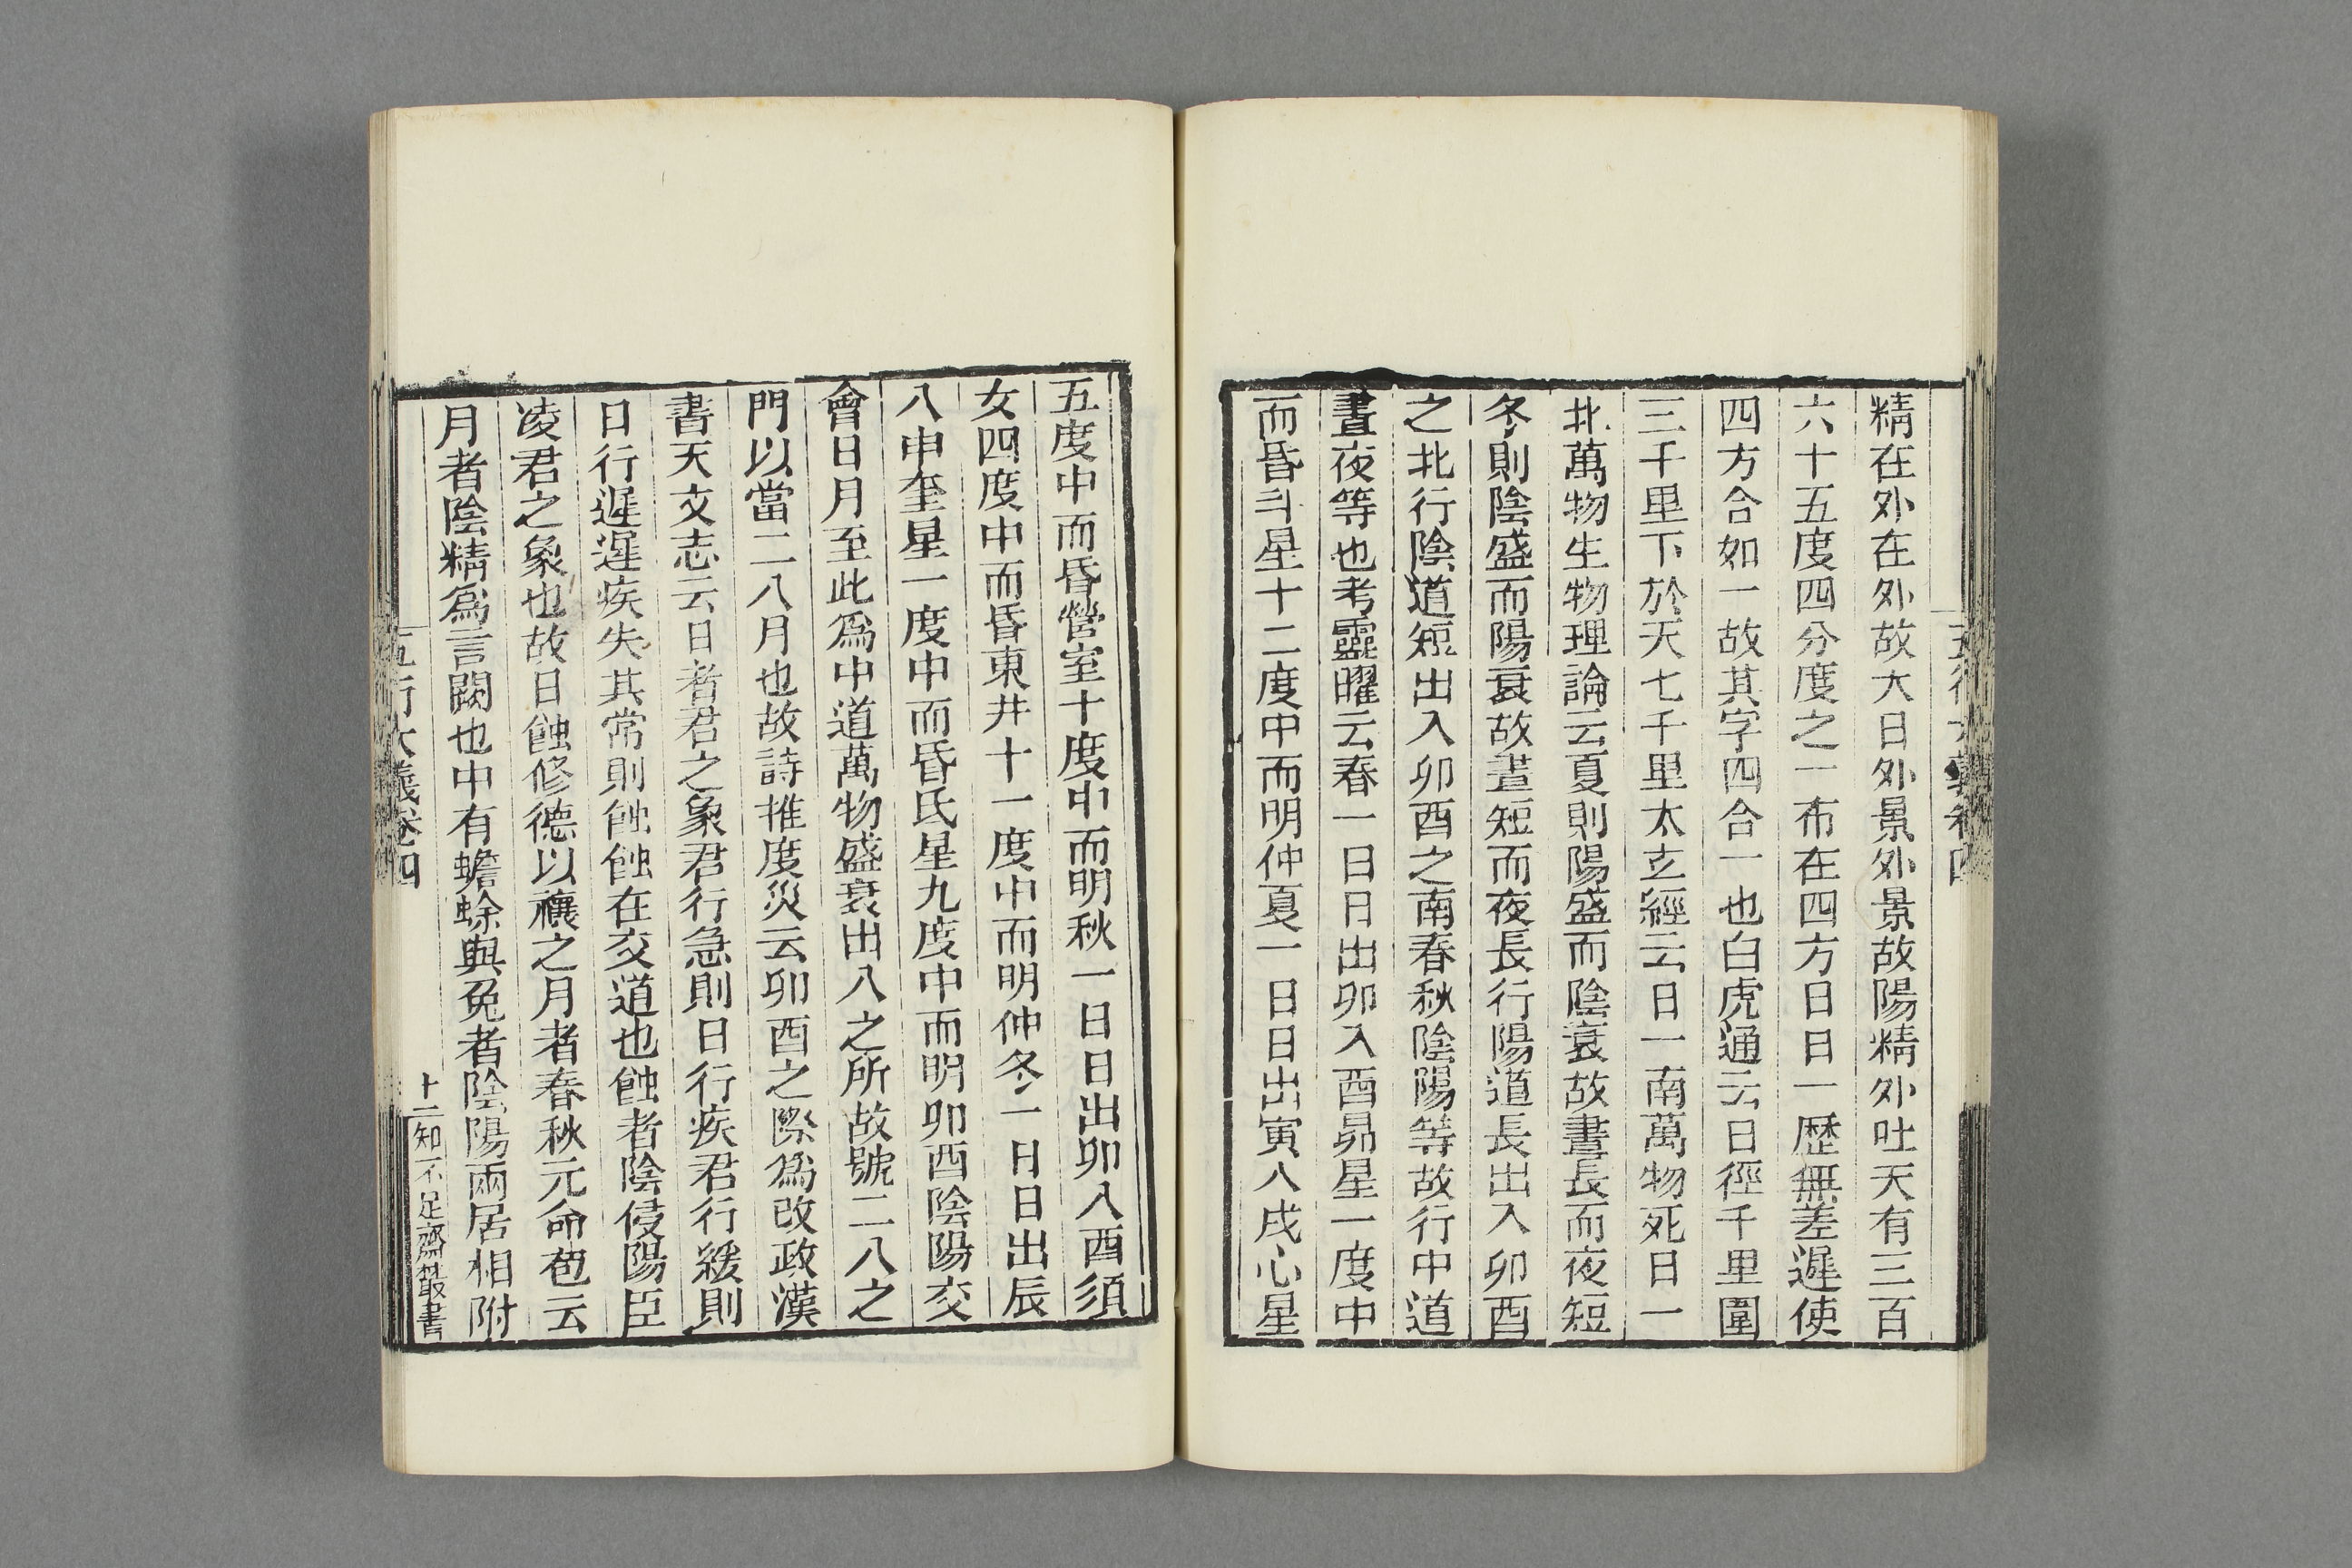 精在外在外故大日外景外景故陽精外吐天有三百
六十五度四分度之一布在四方日日一歷無差遲使
四方合如一故其字四合一也白虎通云日徑千里圍
三千里下於天七千里太玄經云日一南萬物死日一
北萬物生物理論云夏則陽盛而陰衰故晝長而夜短
冬則陰盛而陽衰故晝短而夜長行陽道長出入卯酉
之北行陰道短出入卯酉之南春秋陰陽等故行中道
晝夜等也考靈曜云春一日日出卯入酉昴星一度中
而昏斗星十二度中而明仲夏一日日出寅入戌心星
五度中而昏營室十度中而明秋一日日出卯入酉須
女四度中而昏東井十一度中而明仲冬一日日出辰
入申奎星一度中而昏氐星九度中而明卯酉陰陽交
會日月至此爲中道萬物盛衰出入之所故號二八之
門以當二八月也故詩推度災云卯酉之際爲改政漢
書天文志云日者君之象君行急則日行疾君行緩則
日行遲遲疾失其常則蝕蝕在交道也蝕者陰侵陽臣
凌君之象也故日蝕修德以禳之月者春秋元命苞云
月者陰精爲言闕也中有蟾蜍與兔者陰陽兩居相附
五行大義卷四
十二
知不足齋叢書